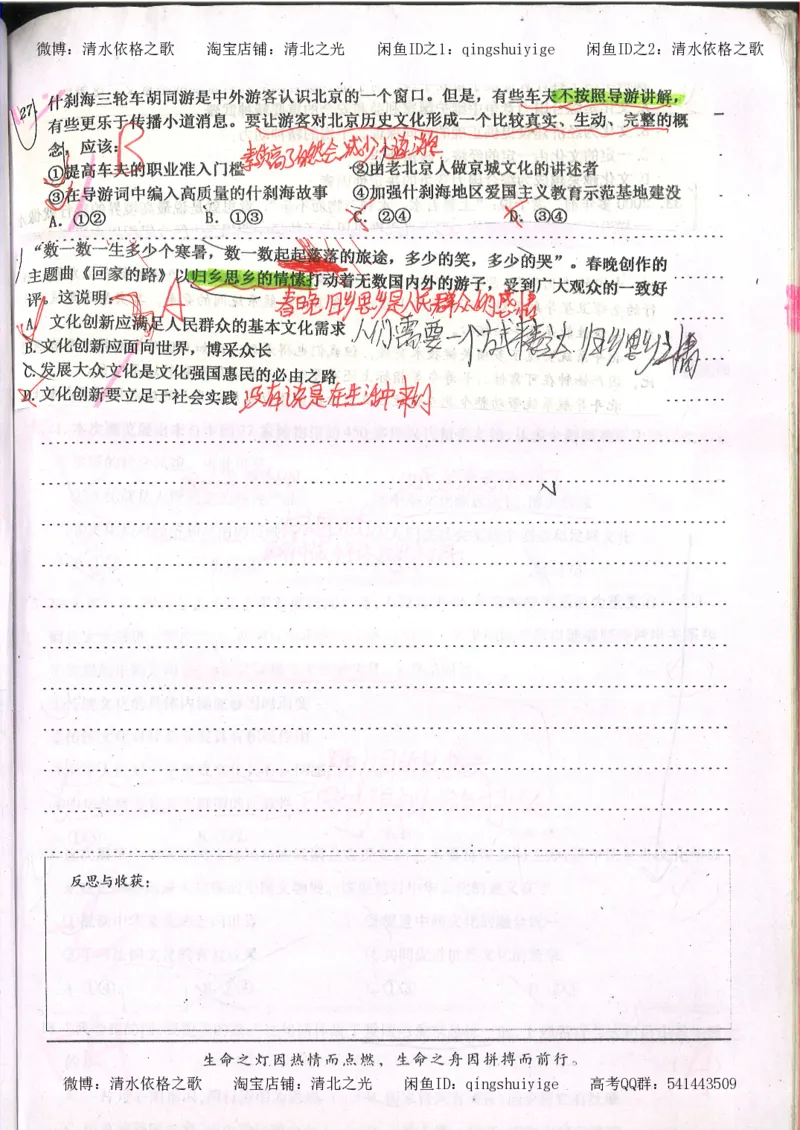 微博：清水依格之歌 淘宝店铺：清北之光 闲鱼ID之1：qingshuiyige 闲鱼ID之2：清水依格之歌
27
什刹海三轮车胡同游是中外游客认识北京的一个窗口。但是，有些车夫不按照导游讲解，
有些更乐于传播小道消息。要让游客对北京历史文化形成一个比较真实、生动、完整的概
念，应该：
B
素质高了自然会减少小道消息
①提高车夫的职业准入门槛 ②由老北京人做京城文化的讲述者
③在导游词中编入高质量的什刹海故事 ④加强什刹海地区爱国主义教育示范基地建设
A．①② B．①③ C．②④ D．③④
“数一数一生多少个寒暑，数一数起起落落的旅途，多少的笑，多少的哭”。春晚创作的
主题曲《回家的路》以归乡思乡的情愫打动着无数国内外的游子，受到广大观众的一致好
评。这说明：
A
春晚 归乡思乡是人民群众的感情
A．文化创新应满足人民群众的基本文化需求
人们需要一个 归乡思乡之情
B.文化创新应面向世界，博采众长
C.发展大众文化是文化强国惠民的必由之路
D.文化创新要立足于社会实践
没有说是在生活中来的
反思与收获：
生命之灯因热情而点燃，生命之舟因拼搏而前行。
微博：清水依格之歌 淘宝店铺：清北之光 闲鱼ID：qingshuiyige 高考QQ群：541443509